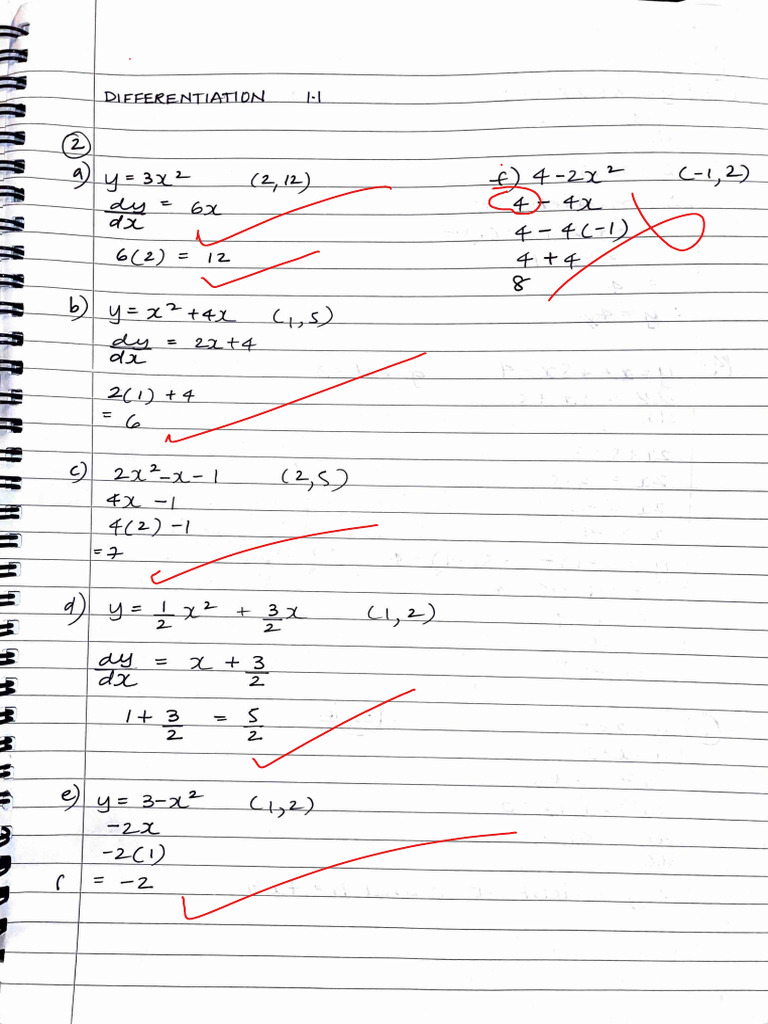 DIFFERENTIATION 1.1
②
a) y = 3x² (2,12)
dy/dx = 6x
6(2) = 12
b) y = x² + 4x (1,5)
dy/dx = 2x+4
2(1) + 4
= 6
c) 2x² - x - 1 (2,5)
4x - 1
4(2) - 1
= 7
d) y = 1/2 x² + 3/2 x (1,2)
dy/dx = x + 3/2
1 + 3/2 = 5/2
e) y = 3 - x² (1,2)
-2x
-2(1)
= -2
f) 4 - 2x² (-1,2)
4 - 4x
4 - 4(-1)
4 + 4
8